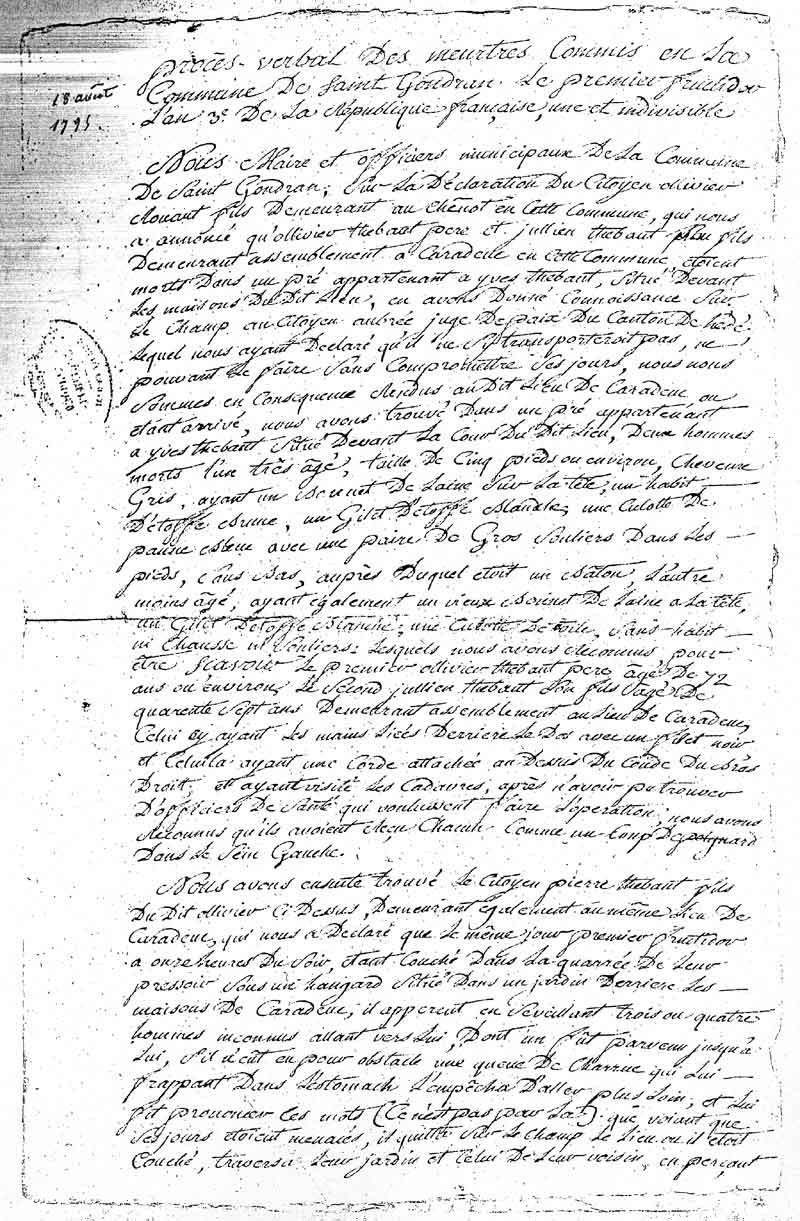 procès-verbal Des meurtres Commis en La
Commune De Saint Gondran Le premier fructidor
L'an 3e De La République française, une et indivisible
18 août
1795.
Nous Maire et officiers municipaux De La Commune
De Saint Gondran; Sur La Déclaration Du Citoyen ollivier
Roüant fils Demeurant au chênot en Cette Commune, qui nous
a annoncé qu'ollivier thebaut pere et jullien thebaut fils
Demeurant assemblement a Caradeuc en Cette Commune, etoient
morts Dans un pré appartenant a yves thebaut, Situé Devant
Les maisons Du Dit Lieu, en avons Donné Connoissance Sur
Le Champ au Citoyen aubrée juge De paix Du Canton De hedé
Lequel nous ayant Declaré qu'il ne S'y transporteroit pas, ne
pouvant Le faire Sans Compromettre Ses jours, nous nous
Sommes en Consequence Rendus au Dit Lieu De Caradeuc ou
etant arrivé, nous avons trouvé Dans un pré appartenant
a yves thebaut Situé Devant La Cour Du Dit Lieu, Deux hommes
morts l'un très âgé, taille De Cinq pieds ou environ, Cheveux
Gris, ayant un Bonnet De Laine Sur La tête, un habit
D'étoffe Brune, un Gilet D'étoffe Blanche, une Culotte De
panne Bleue avec une paire De Gros Souliers Dans Les
pieds, Sans Bas, auprès Duquel etoit un Bâton, L'autre
moins âgé, ayant également un vieux Bonnet De Laine a La tête,
un Gilet D'étoffe Blanche, une Culotte De toile, Sans habit
ni Chausse ni Souliers: Lesquels nous avons Reconnus pour
être Sçavoir Le premier ollivier thebaut pere âgé De 72
ans ou environ, Le Second jullien thebaut Son fils âgé De
quarente Sept ans Demeurant assemblement au Lieu De Caradeuc,
Celui Cy ayant Les mains Liées Derriere Le Dos avec un filet noir
et Celuila ayant une Corde attachée au Dessus Du Coude Du Bras
Droit; et ayant visité Les Cadavres, après n'avoir pu trouver
D'officiers De Santé qui voulussent faire L'operation, nous avons
Reconnus qu'ils avoient Reçu Chacun Comme un Coup De poignard
Dans Le Sein Gauche.
Nous avons ensuite trouvé Le Citoyen pierre thebaut fils
Du Dit ollivier Ci Dessus, Demeurant également au même Lieu De
Caradeuc, qui nous a Declaré que Le même jour premier fructidor
a onze heures Du Soir, etant Couché Dans La quarrée De Leur
pressoir Sous un hangard Situé Dans un jardin Derriere Les
maisons De Caradeuc, il apperçut en S'éveillant trois ou quatre
hommes inconnus allant vers Lui, Dont un fût parvenu jusqu'à
Lui, S'il n'eût eu pour obstacle une queue De Charrue qui Lui
frappant Dans L'estomach L'empêcha D'aller plus Loin, et Lui
fit prononcer Ces mots (Ce n'est pas par La); que voiant que
Ses jours etoient menacés, il quitta Sur Le Champ Le Lieu ou il etoit
Couché, traversa Leur jardin et Celui De Leur voisin, en perçant